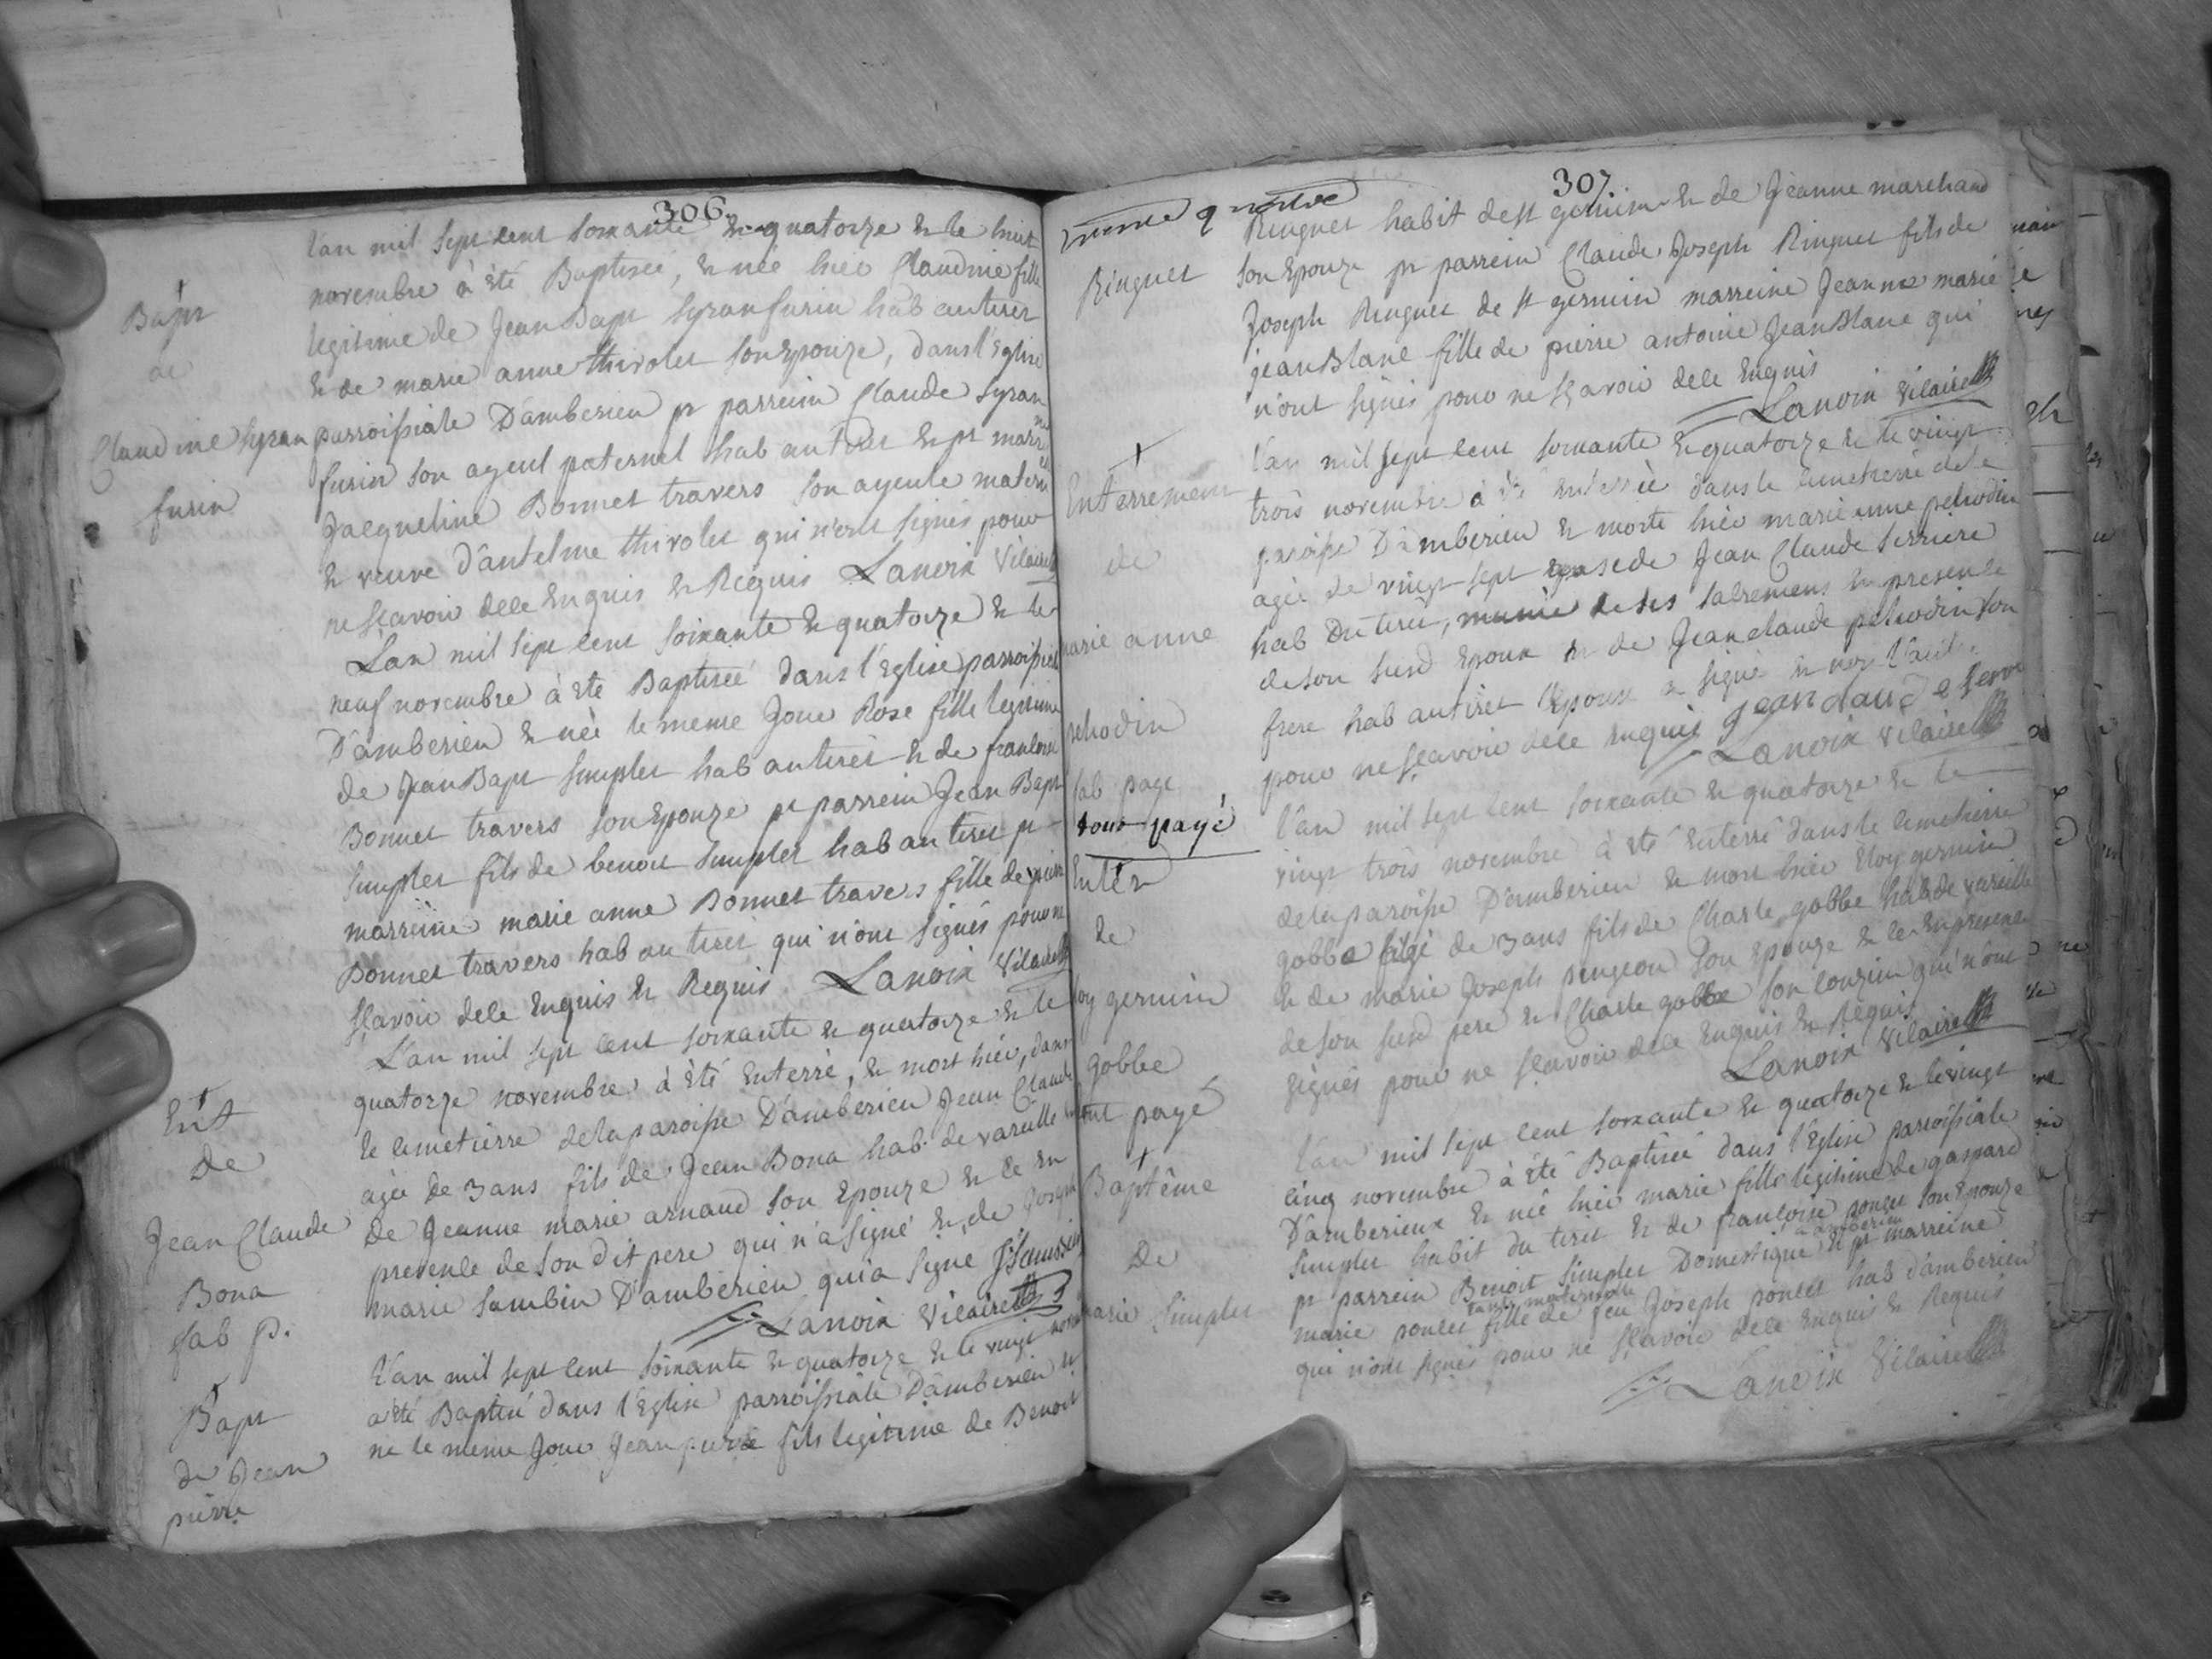 306
l'an mil sept cent soixante & quatorze & le huit
Bapt novembre à été Baptisée, & née hier Claudine fille
de legitime de Jean Bapt Syran furin hab au tiret
& de marie anne thivolet son Epouze, dans l'Eglise
Claudine Syran parroissiale D'amberieu pr parrein Claude Syran
furin furin son ayeul paternel hab au tiret & pr marr
Jacqueline Bonnet travers son ayeule matern
& veuve d'antelme thivolet qui n'ont signés pour
ne sçavoir de ce Enquis & Requis Lanoix Vilaire
L'an mil sept cent soixante & quatorze & le
neuf novembre à été Baptisée dans l'Eglise parroissiale
D'amberieu & née le meme Jour Rose fille legitime
de Jean Bapt Simplet hab au tiret & de francoise
Bonnet travers son Epouze pr parrein Jean Bapt
Simplet fils de benoit Simplet hab au tiret pr
marreine marie anne Bonnet travers fille de pierre
Bonnet travers hab au tiret qui n'ont signés pour ne
sçavoir de ce Enquis & Requis Lanoix Vilaire
L'an mil sept cent soixante & quatorze & le
Ent quatorze novembre à été Enterré, & mort hier, dans
de le cimetierre de la paroisse D'amberieu Jean Claude
agée de 3 ans fils de Jean Bona hab de vareille
Jean Claude De Jeanne marie arnaud son Epouze & ce En
Bona presence de son dit pere qui n'a signé & de Joseph
sab p. marie sambin D'amberieu qui a signe
Lanoix Vilaire
l'an mil sept cent soixante & quatorze & le vingt nove
Bapt a été Baptisé dans l'Eglise parroissiale D'amberieu &
de Jean ne le meme Jour Jean pierre fils legitime de Benoit
pierre
307
Ringuet habit de st germain & de Jeanne marchand
Ringuet son Epouze pr parrein Claude Joseph Ringuet fils de
Joseph Ringuet de st germain marreine Jeanne marie
jean Blanc fille de pierre antoine Jean Blanc qui
n'ont signés pour ne sçavoir de ce Enquis
Lanoix Vilaire
l'an mil sept cent soixante & quatorze & le vingt
Enterrement trois novembre à été Enterrée dans le cimetierre de le
de paroisse D'amberieu & morte hier marie anne pelrodin
agée de vingt sept épouse de Jean Claude serriere
marie anne hab Du tiret, munie de ses sacremens En presence
de son susd Epoux & de Jean claude pelrodin son
pelrodin frere hab au tiret l'Epoux a signé & non l'autre
sab paye pour ne sçavoir de ce Enquis Jean Claude serre
tout payé Lanoix Vilaire
l'an mil sept cent soixante & quatorze & le
Enter vingt trois novembre à été Enterré dans le cimetierre
de de la paroisse D'amberieu & mort hier Eloy germain
gobbe agé de 3 ans fils de Charle gobbe hab de vareille
Eloy germain & de marie Joseph pingeon son Epouze & ce En presence
gobbe de son susd pere & Charle gobbe son couzin qui n'ont
tout payé signés pour ne sçavoir de ce Enquis & Requis
Lanoix Vilaire
l'an mil sept cent soixante & quatorze & le vingt
Baptême cinq novembre à été Baptisée dans l'Eglise parroissiale
D'amberieux & née hier marie fille legitime de gaspard
De Simplet habit du tiret & de francoise poncet son Epouze
pr parrein Benoit Simplet Domestique à amberieu & pr marreine
marie Simplet marie poncet tante maternelle fille de feu Joseph poncet hab d'amberieu
qui n'ont signés pour ne sçavoir de ce Enquis & Requis
Lanoix Vilaire